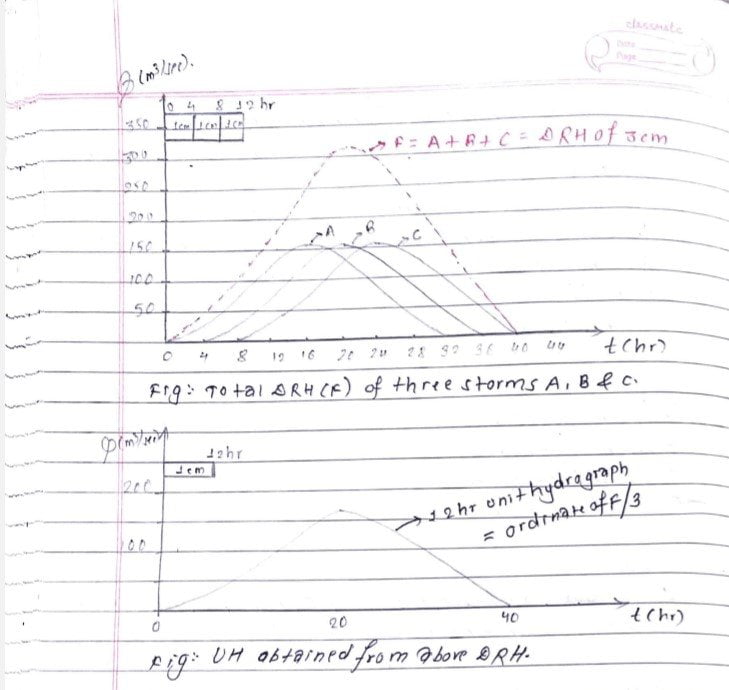 classmate
Date
Page
Q (m³/sec).
0 4 8 12 hr
1cm 1cm 1cm
350
300
250
200
150
100
50
F = A + B + C = DRH of 3cm
A B C
0 4 8 12 16 20 24 28 32 36 40 44 t (hr)
Fig: Total DRH (F) of three storms A, B & C.
Q (m³/sec)
12hr
1cm
200
100
12hr unit hydrograph
= ordinate of F/3
0 20 40 t (hr)
Fig: UH obtained from above DRH.